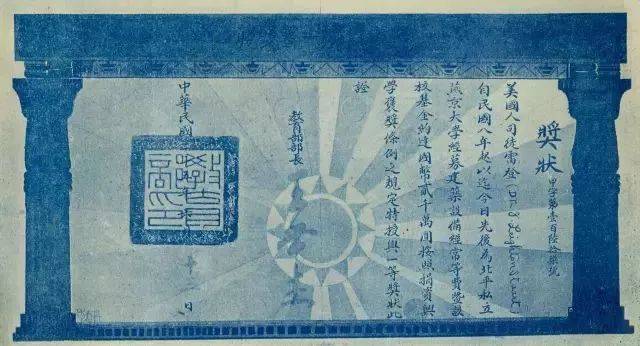 獎狀
中字第壹百陸拾柒號
美國人司徒雷登(Dr. J. Leighton Stuart)
自民國八年起以迄今日先後為北平私立
燕京大學經募建築設備經常等費暨該
校基金約達國幣貳千萬圓按照捐資興
學褒獎條例之規定特授與一等獎狀此
證
教育部部長
中華民國
日